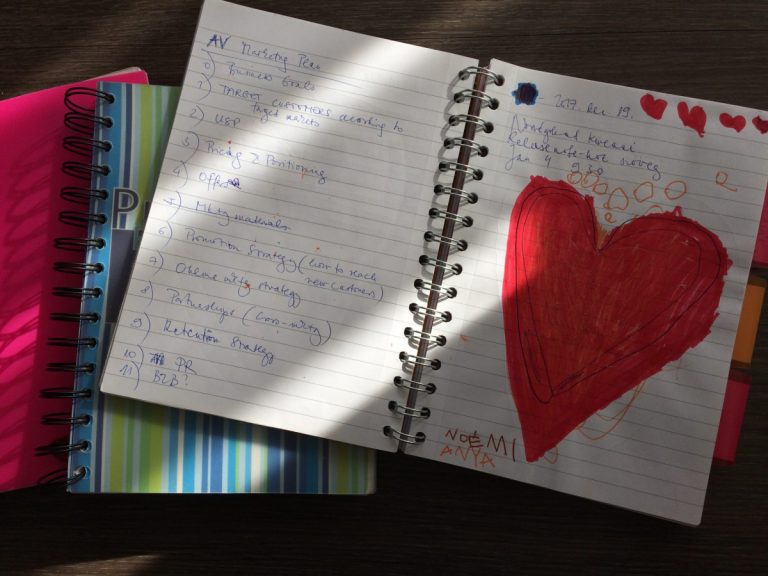 AV Marketing Plan
0) Business Goals
1) TARGET CUSTOMERS according to
target markets
2) USP
3) Pricing & Positioning
4) Offers
5) Mktg materials
6) Promotion Strategy (how to reach
new customers)
7) Online mktg strategy
8) Partnerships (cross-mktg)
9) Retention Strategy
10) PR
11) B2B?
2017. dec 19.
Jan 4 9
NOÉMI
ANYA
P